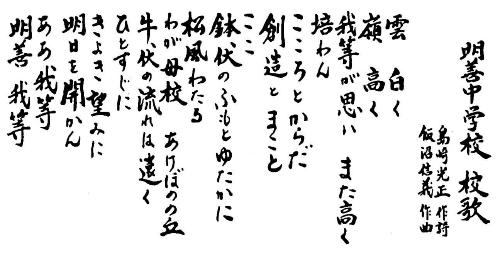 明善中学校 校歌
島崎光正 作詩
飯沼信義 作曲
雲 白く
嶺 高く
我等が思い また高く
培わん
こころとからだ
創造と まこと
ここ
鉢伏のふもとゆたかに
松風わたる
わが母校 あけぼのの丘
牛伏の流れは遠く
ひとすじに
きよき望みに
明日を開かん
ああ 我等
明善 我等